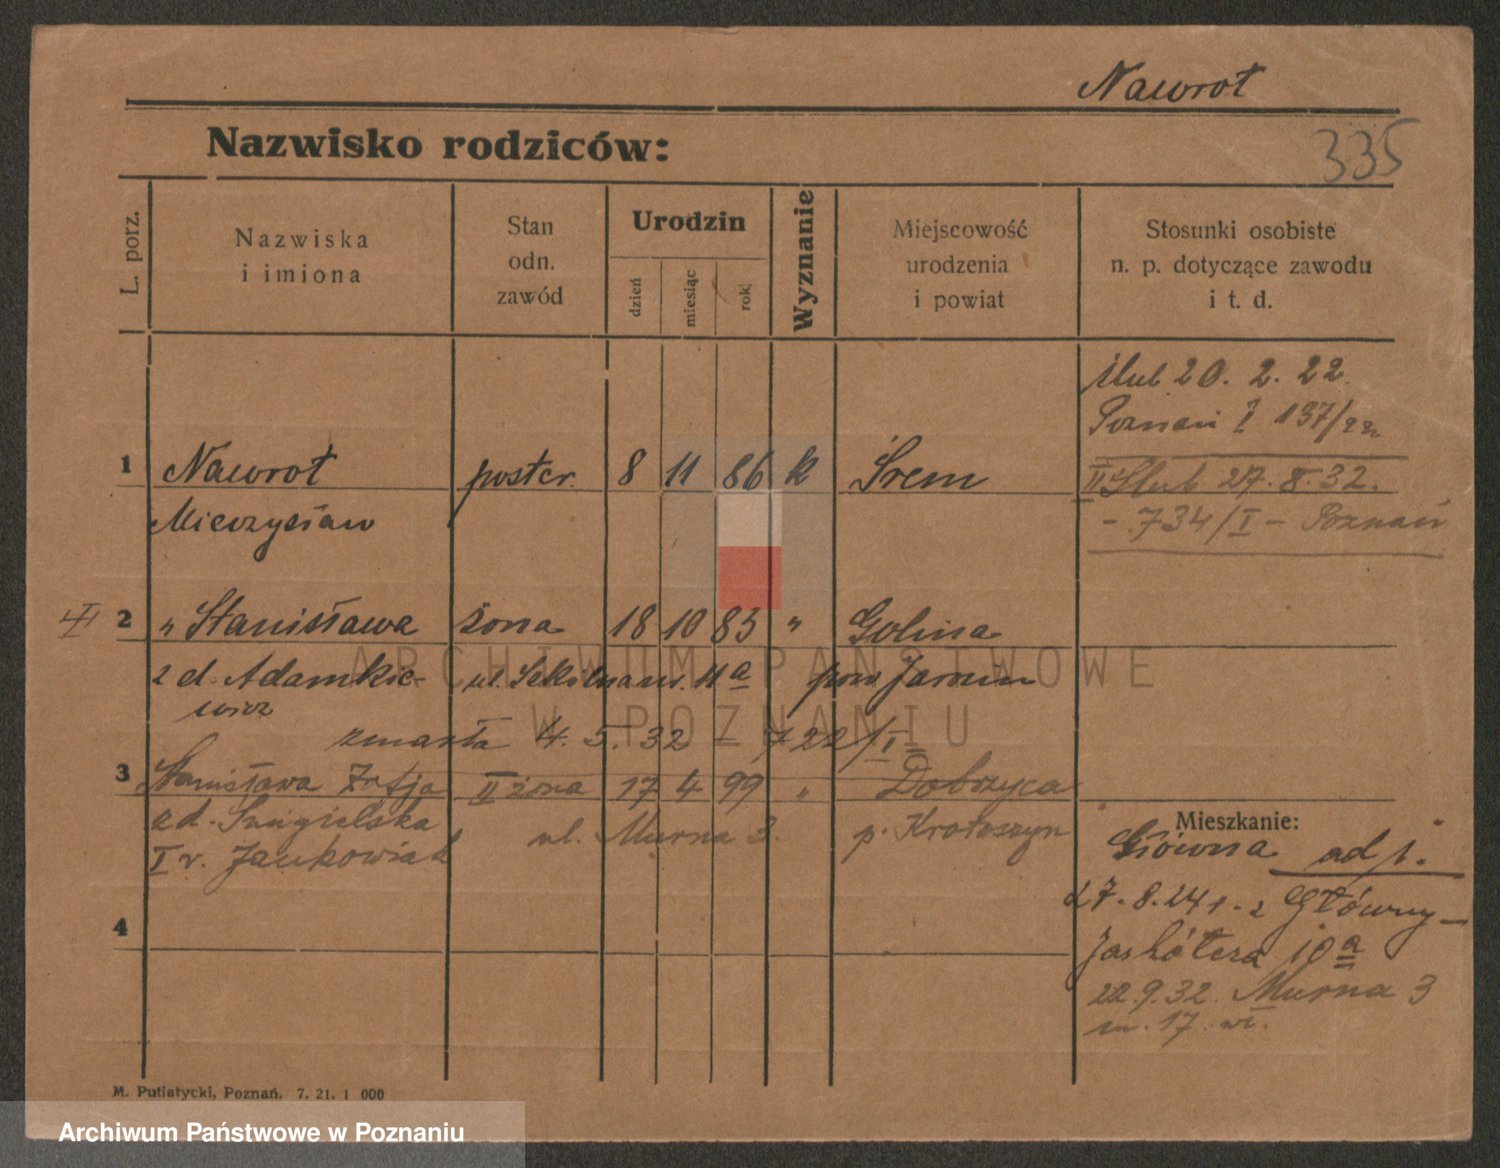 Nawrot
335
Nazwisko rodziców:
L. porz.
Nazwiska
i imiona
Stan
odn.
zawód
Urodzin
dzień
miesiąc
rok
Wyznanie
Miejscowość
urodzenia
i powiat
Stosunki osobiste
n. p. dotyczące zawodu
i t. d.
Ślub 20. 2. 22.
Poznań I 137/22
1 Nawrot poster. 8 11 86 k Śrem
Mieczysław
II Ślub 27. 8. 32.
- 734/I - Poznań
2 " Stanisława żona 18 10 83 " Golina
z d. Adamkie-
wicz
ul. 11a pow. Jarocin
zmarła 4. 5. 32 722/I
3 Stanisława Zofja II żona 17 4 99 " Dobrzyca
z d. ul. Murna 3. p. Krotoszyn
I v. Jankowiak
4
Mieszkanie:
Główna
27. 8. 24 Główny-
10a
22. 9. 32. Murna 3
m. 17
M. Putiatycki, Poznań, 7. 21. 1 000
ARCHIWUM PAŃSTWOWE
W POZNANIU
Archiwum Państwowe w Poznaniu